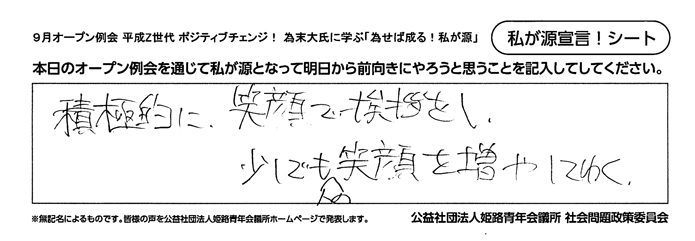 9月オープン例会 平成Z世代 ポジティブチェンジ！ 為末大氏に学ぶ「為せば成る！私が源」
私が源宣言！シート
本日のオープン例会を通じて私が源となって明日から前向きにやろうと思うことを記入してしてください。
積極的に、笑顔で挨拶をし、
少しでも笑顔を増やしていく、
人の
※無記名によるものです。皆様の声を公益社団法人姫路青年会議所ホームページで発表します。
公益社団法人姫路青年会議所 社会問題政策委員会